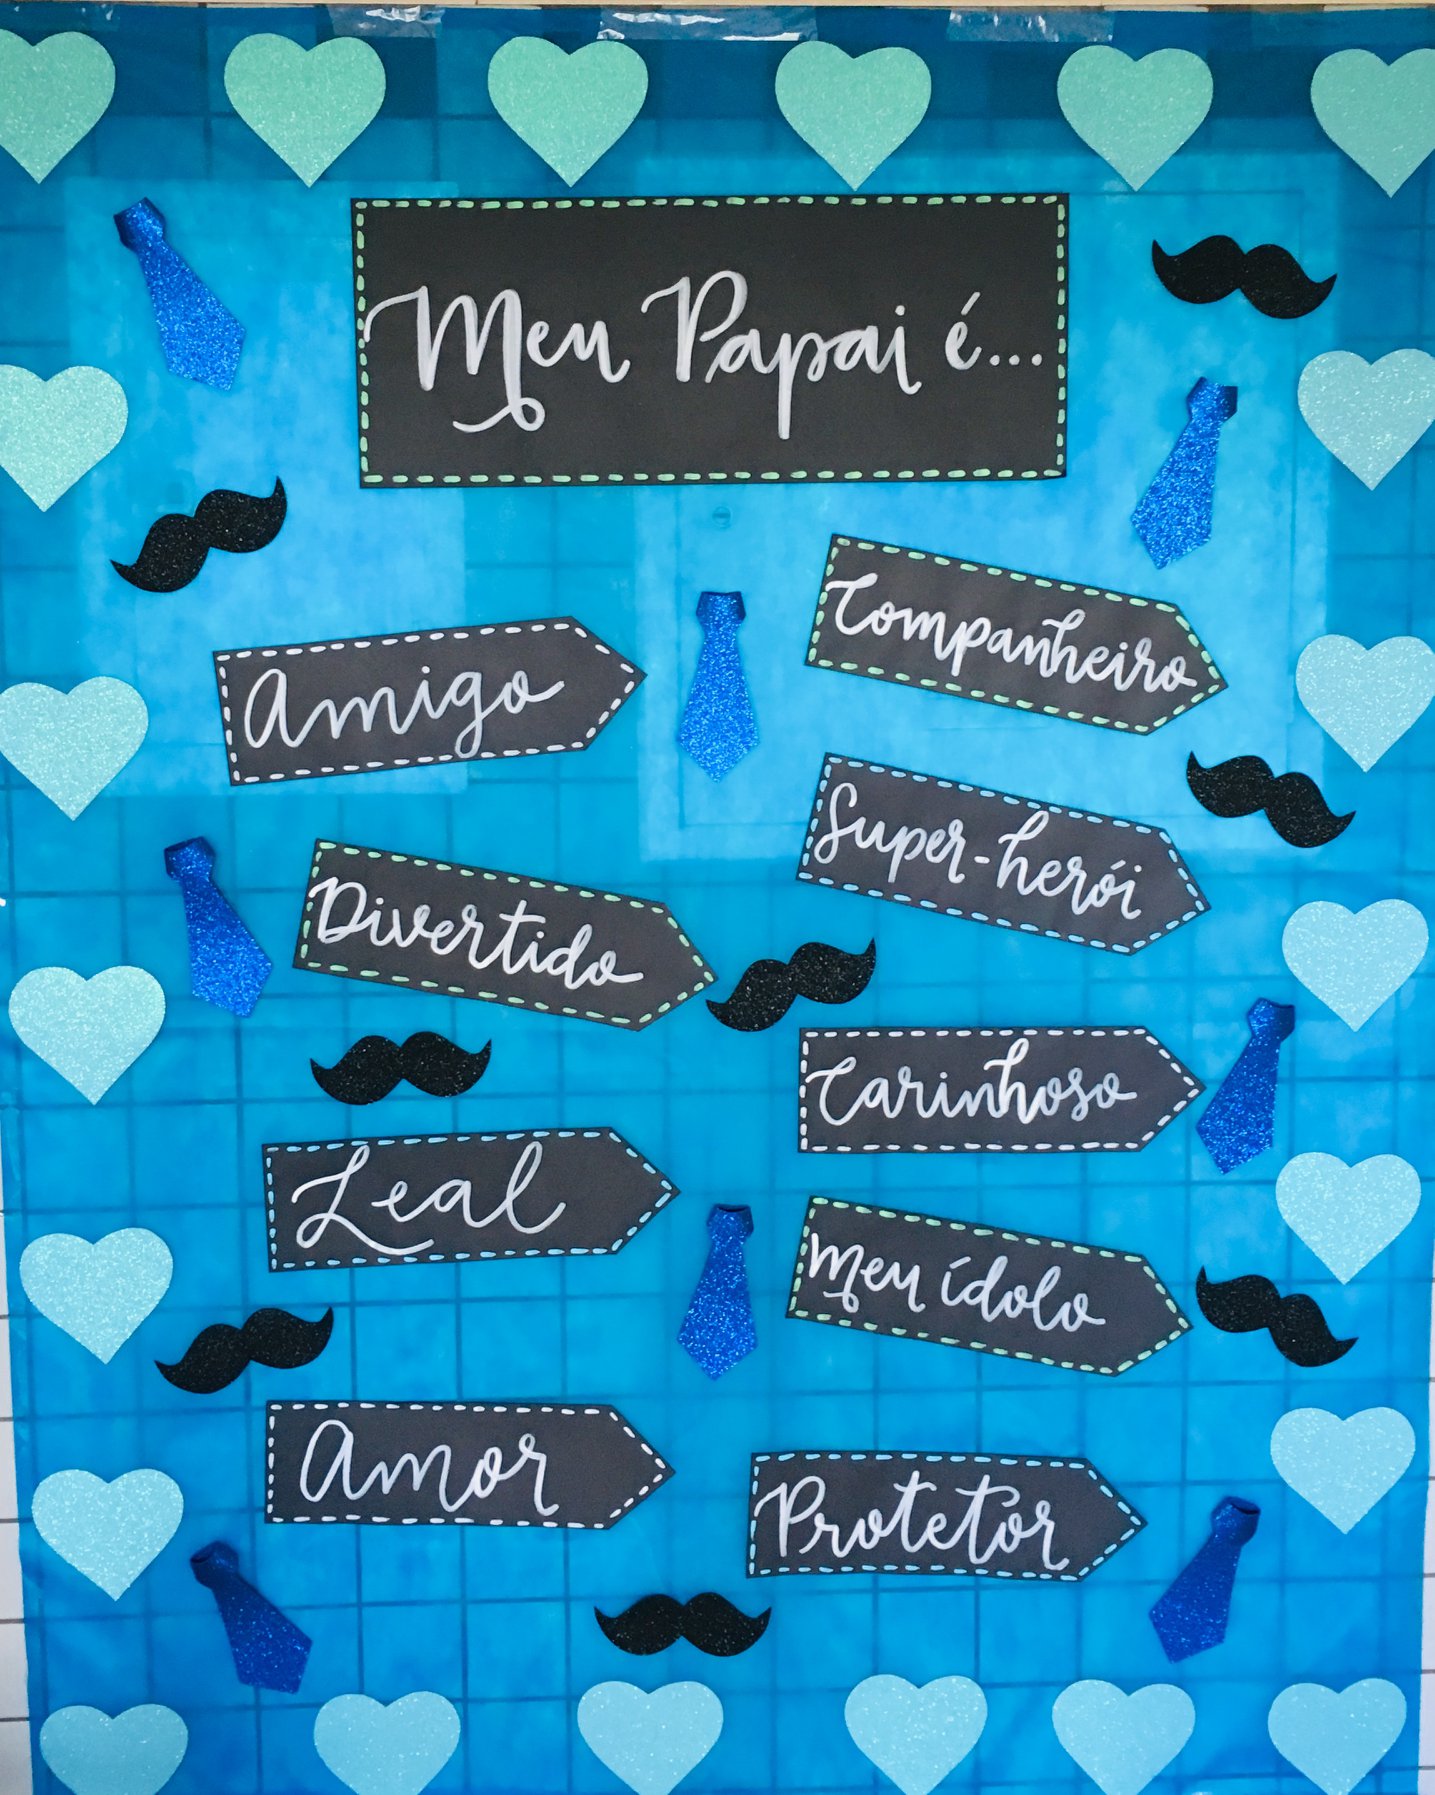 Meu Papai é...
Companheiro
Amigo
Super-herói
Divertido
Carinhoso
Leal
Meu ídolo
Amor
Protetor